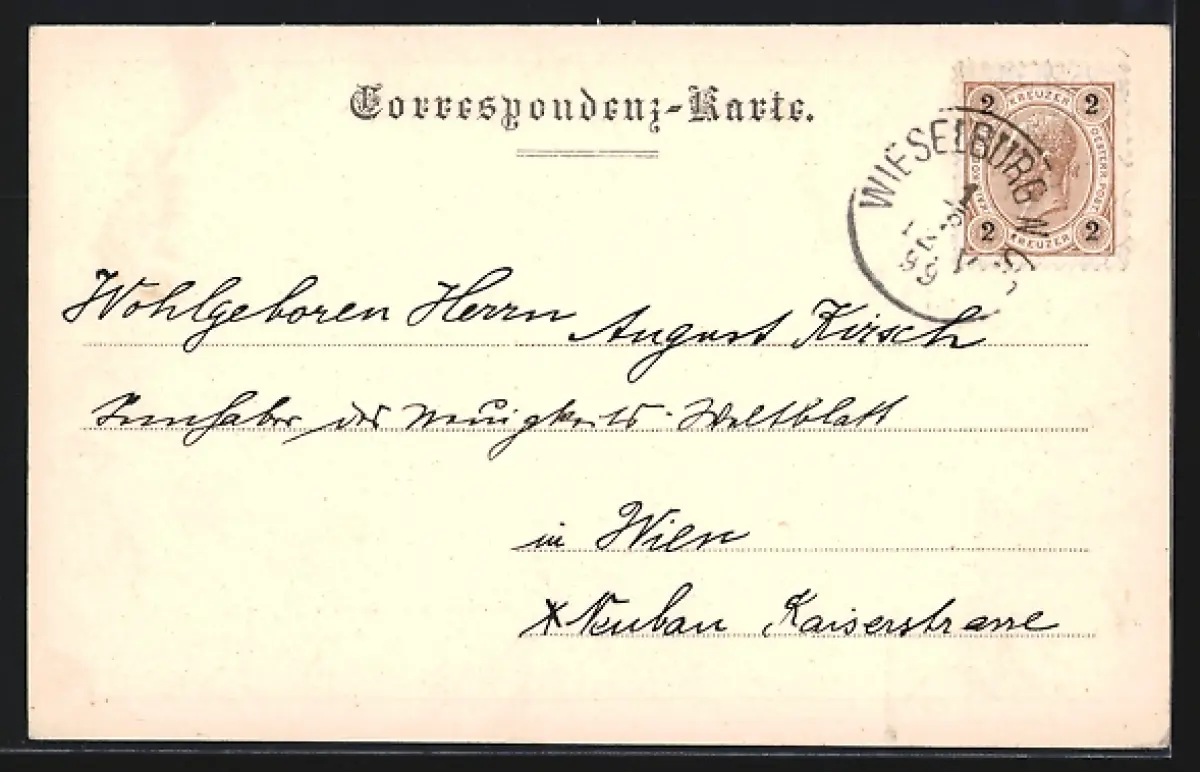 Correspondenz-Karte.
2 KREUZER 2
OESTERR. POST
2 KREUZER 2
WIESELBURG
Wohlgeboren Herrn August Kirsch
Innhaber des Neuigkeits-Weltblatt
in Wien
Neubau Kaiserstrasse